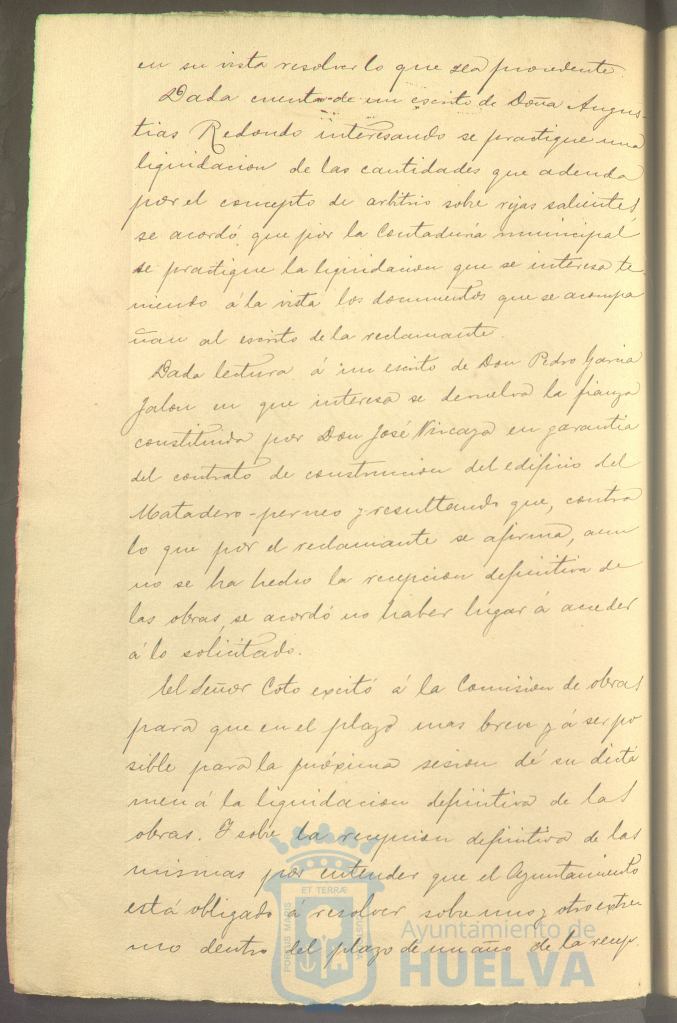 en su vista resolver lo que sea procedente.
Dada cuenta de un escrito de Doña Angus-
tias Redondo interesando se practique una
liquidacion de las cantidades que adeuda
por el concepto de arbitrio sobre rejas salientes,
se acordó que por la Contaduría municipal
se practique la liquidacion que se interesa te-
niendo á la vista los documentos que se acompa
ñan al escrito de la reclamante.
Dada lectura á un escrito de Don Pedro Garcia
Jalon en que interesa se devuelva la fianza
constituida por Don José Vizcaya en garantia
del contrato de construccion del edificio del
Matadero-perneo y resultando que, contra
lo que por el reclamante se afirma, aun
no se ha hecho la recepcion definitiva de
las obras, se acordó no haber lugar á acceder
á lo solicitado.
El Señor Coto excitó á la Comision de obras
para que en el plazo mas breve y á ser po
sible para la próxima sesion dé su dicta
men á la liquidacion definitiva de las
obras. Y sobre la recepcion definitiva de las
mismas por entender que el Ayuntamiento
está obligado á resolver sobre uno y otro extre
mo dentro del plazo de un año de la recep.
ET TERRÆ
PORTUS MARIS
CUSTODIA
Ayuntamiento de
HUELVA